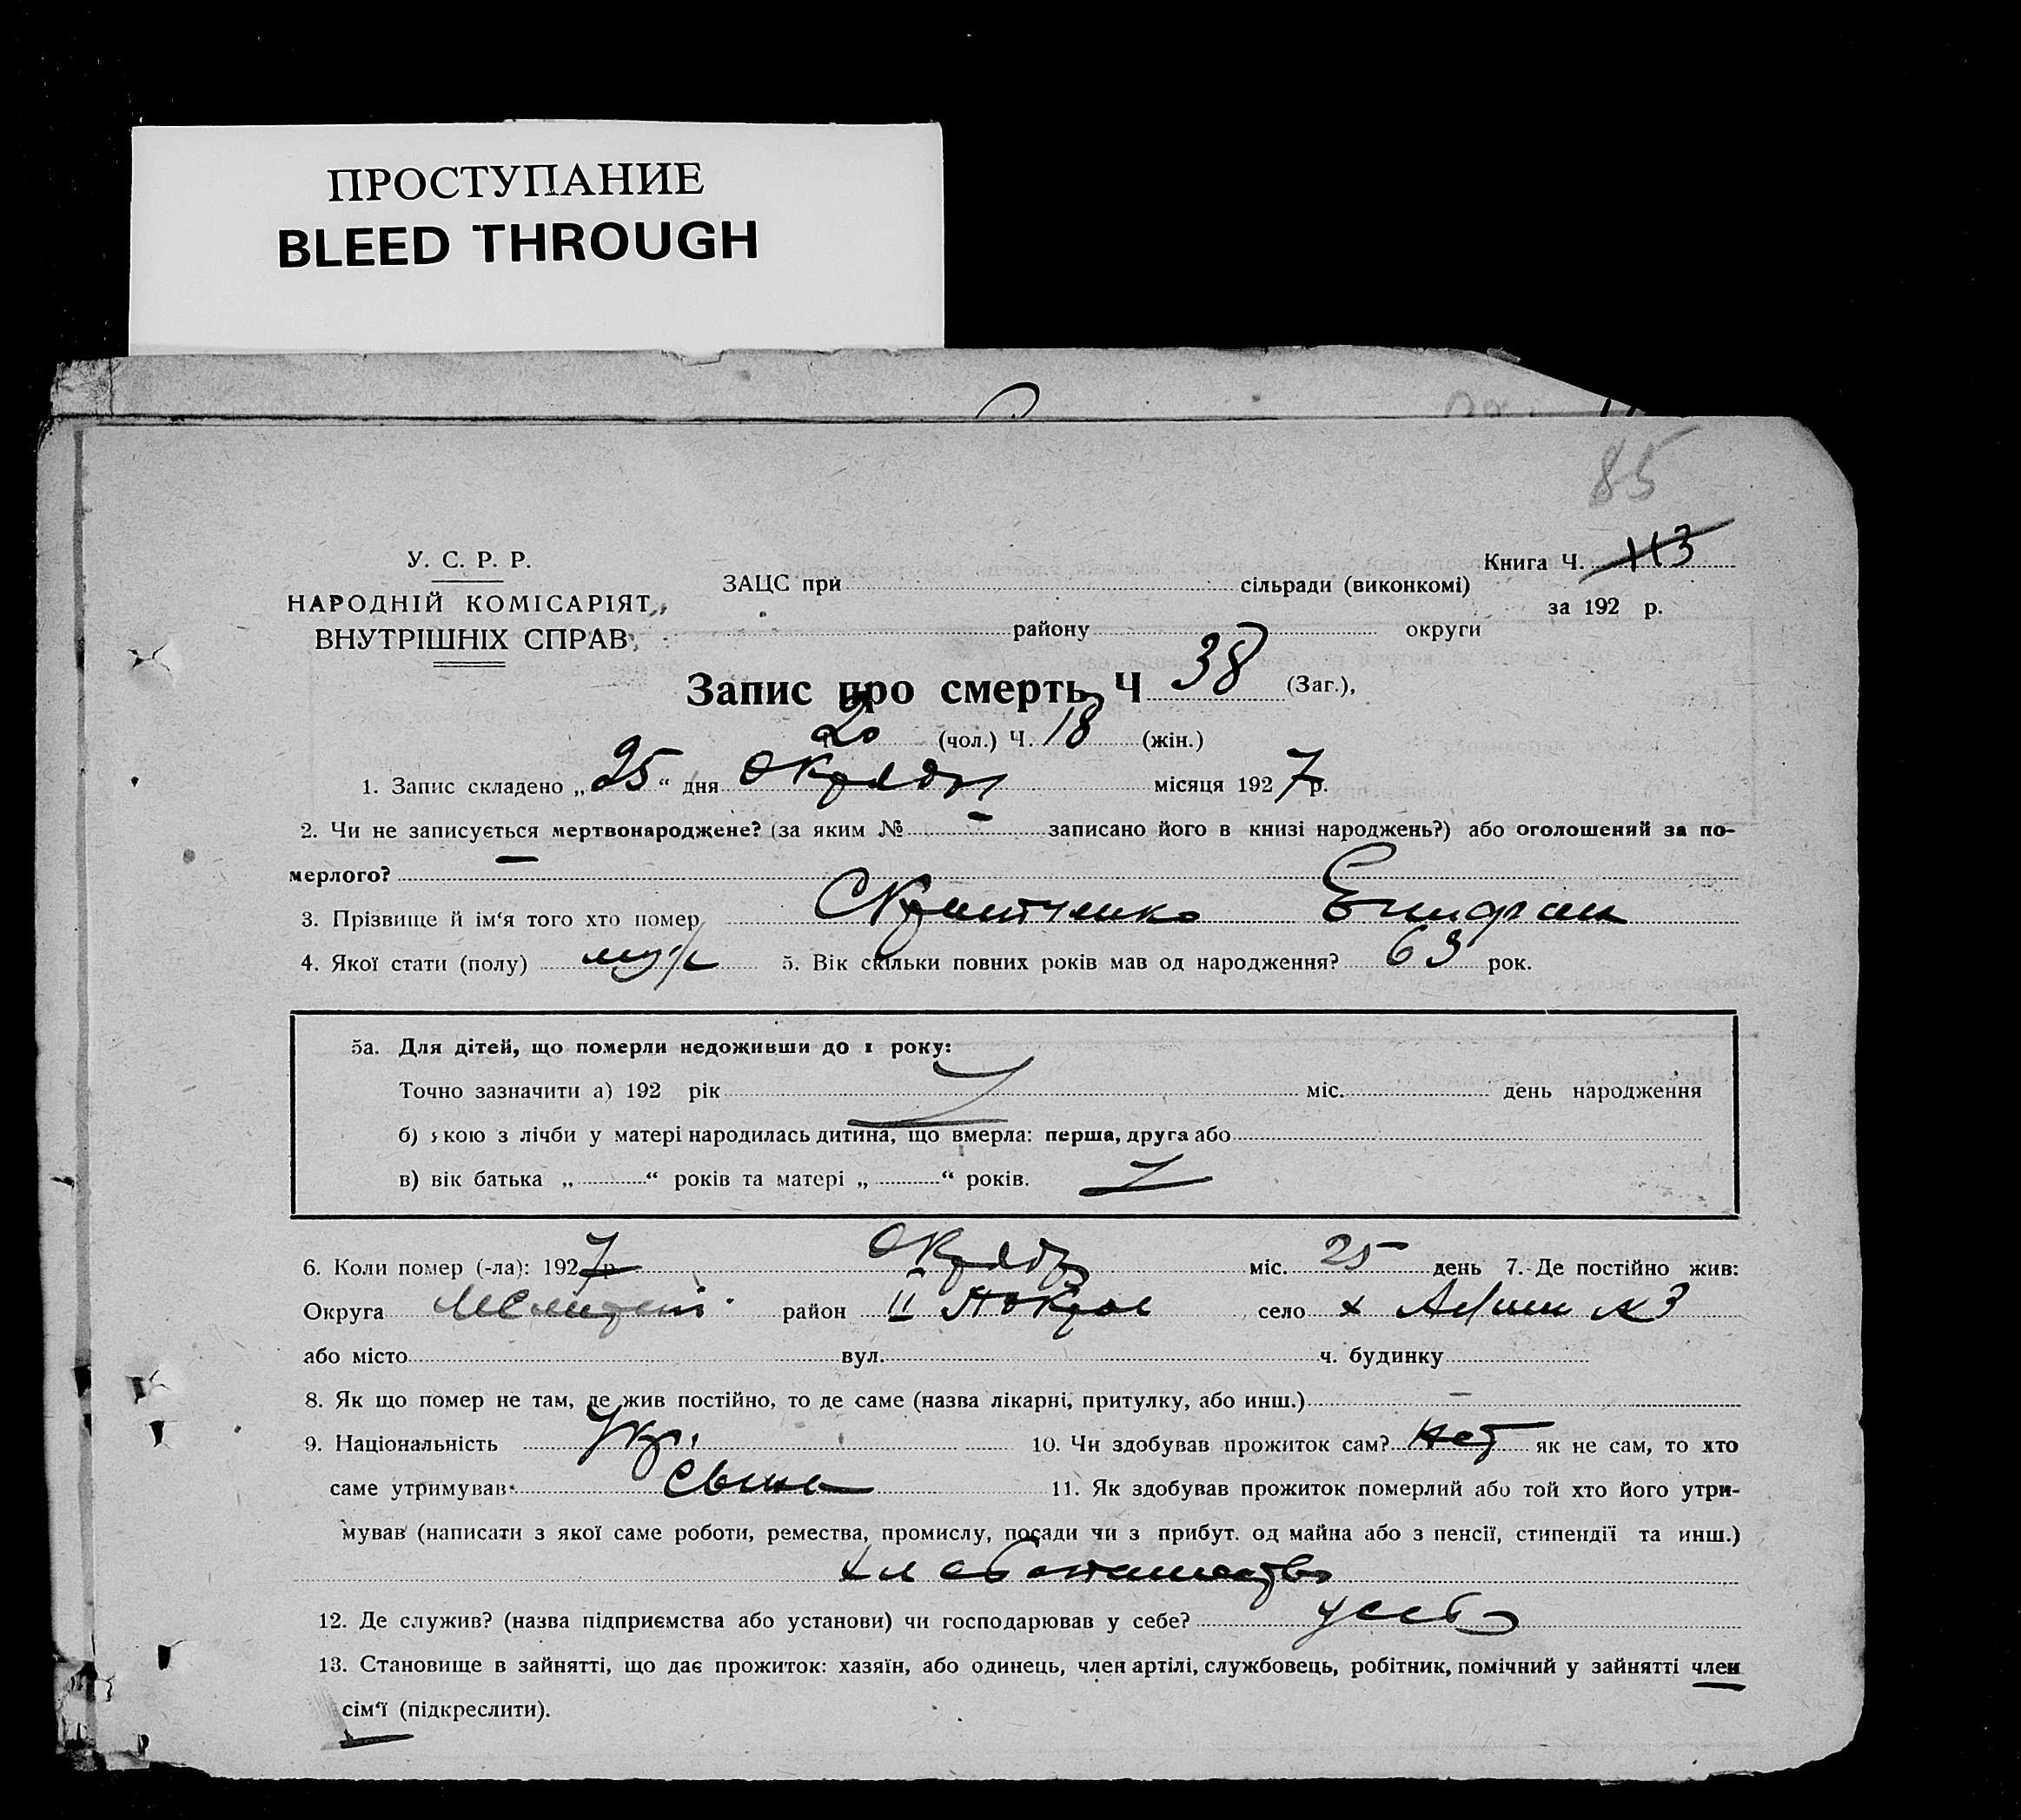 ПРОСТУПАНИЕ
BLEED THROUGH
85
У. С. Р. Р.
НАРОДНІЙ КОМІСАРІЯТ
ВНУТРІШНІХ СПРАВ
Книга Ч. 113
за 192 р.
ЗАЦС при сільради (виконкомі)
району округи
Запис про смерть Ч 38 (Заг.),
20 (чол.) Ч. 18 (жін.)
1. Запис складено „25“ дня Октября місяця 1927 р.
2. Чи не записується мертвонароджене? (за яким № — записано його в книзі народжень?) або оголошений за по-
мерлого? —
3. Прізвище й ім‘я того хто помер
4. Якої стати (полу) муж 5. Вік скільки повних років мав од народження? 63 рок.
5а. Для дітей, що померли недоживши до 1 року:
Точно зазначити а) 192 рік міс. день народження
б) якою з лічби у матері народилась дитина, що вмерла: перша, друга або
в) вік батька „ “ років та матері „ “ років.
6. Коли помер (-ла): 1927 р. Октября міс. 25 день 7. Де постійно жив:
Округа район II Покров село х №3
або місто вул. ч. будинку
8. Як що помер не там, де жив постійно, то де саме (назва лікарні, притулку, або инш.) —
9. Національність Укр. 10. Чи здобував прожиток сам? нет як не сам, то хто
саме утримував сын 11. Як здобував прожиток померлий або той хто його утри-
мував (написати з якої саме роботи, ремества, промислу, посади чи з прибут. од майна або з пенсії, стипендії та инш.)
хлебопашество
12. Де служив? (назва підприємства або установи) чи господарював у себе? у себя
13. Становище в зайнятті, що дає прожиток: хазяїн, або одинець, член артілі, службовець, робітник, помічний у зайнятті член
сім‘ї (підкреслити).